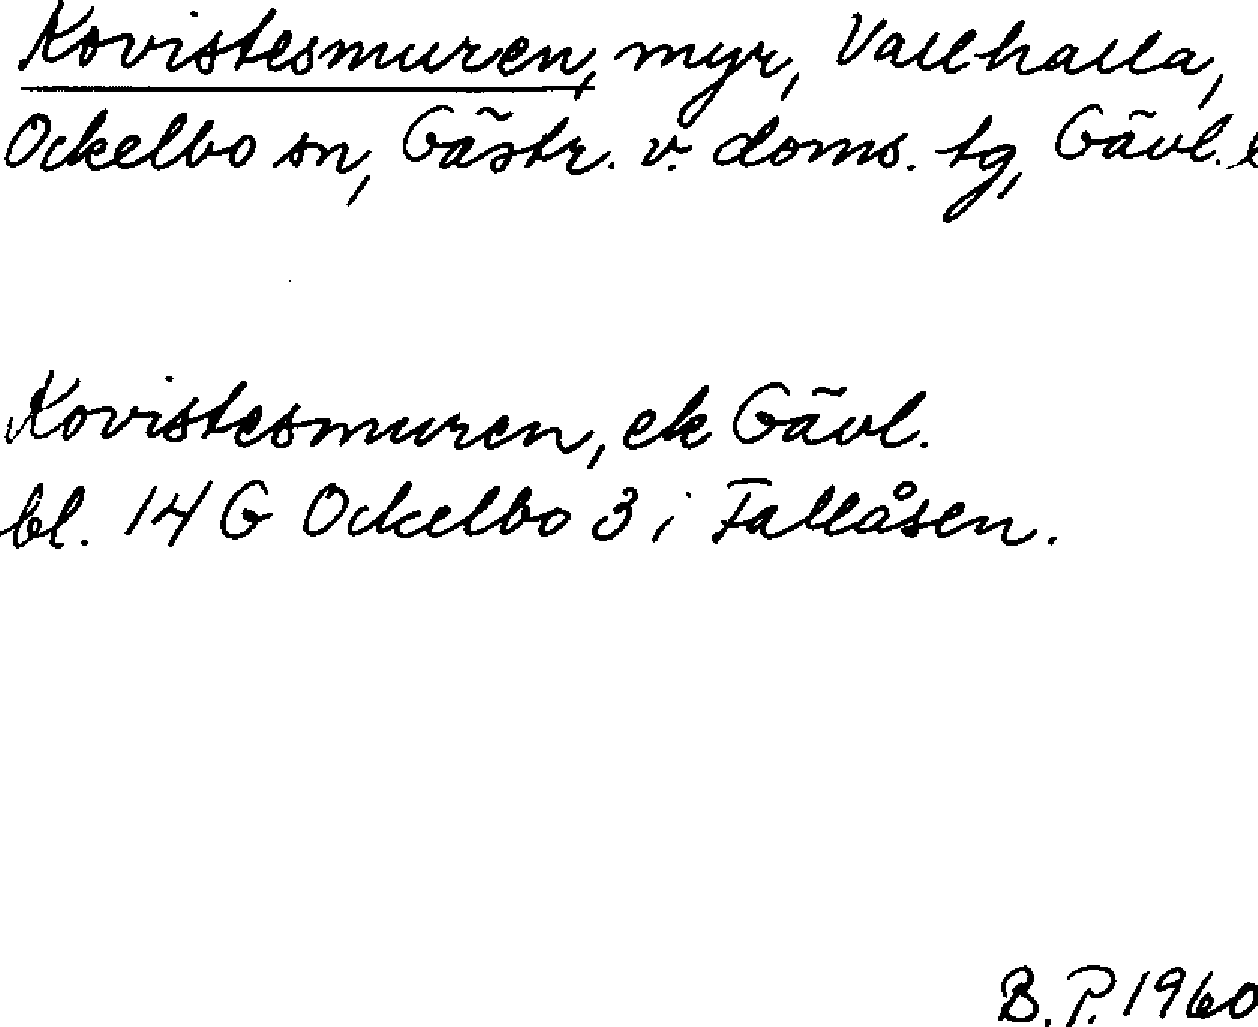 Kovistesmuren, myr, Vallhalla,
Ockelbo sn, Gästr. v. doms. tg, Gävl. l
Kovistesmuren, ek Gävl.
bl. 14 G Ockelbo 3 i Fallåsen.
B. P. 1960